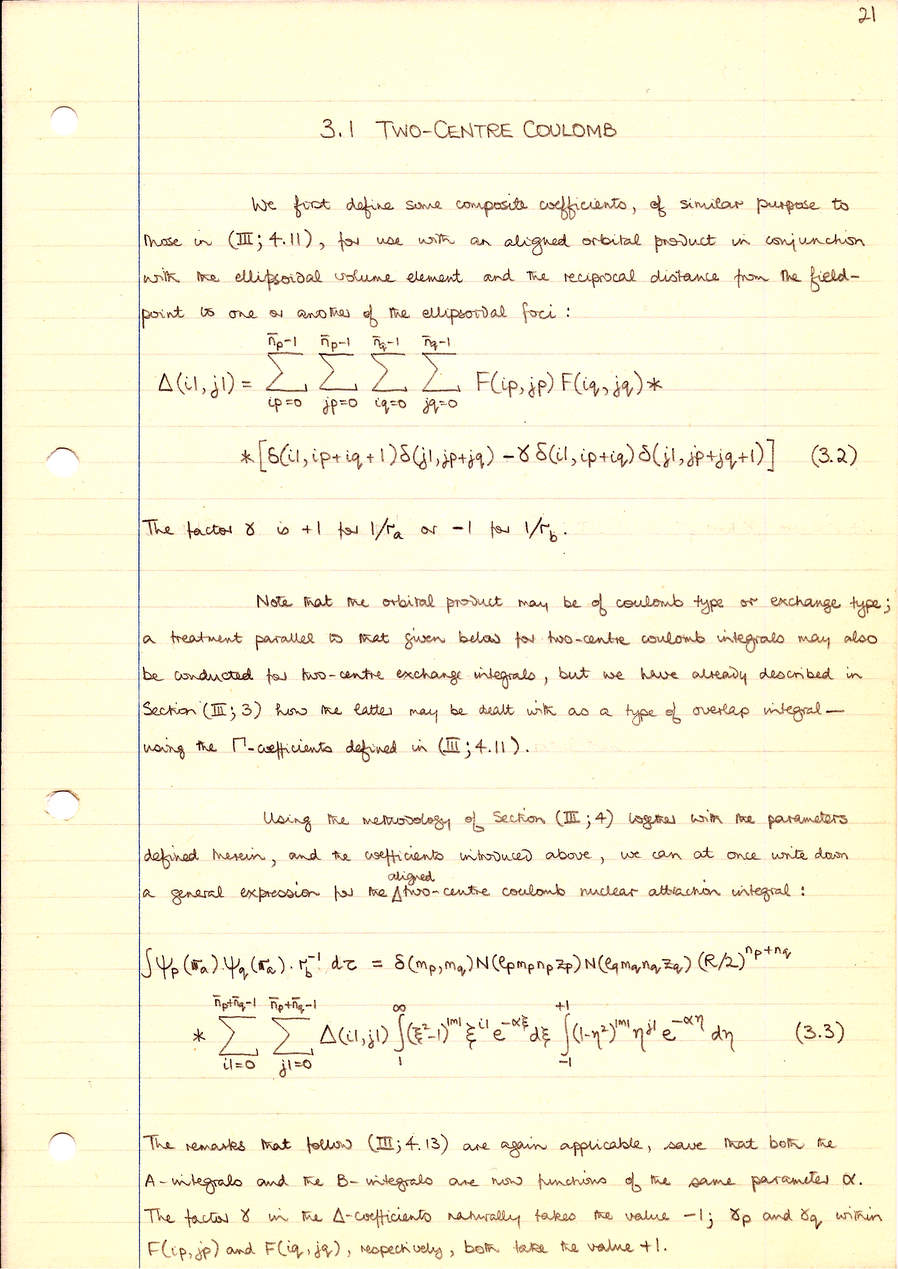 21
3.1 TWO-CENTRE COULOMB
We first define some composite coefficients, of similar purpose to
those in (III; 4.11), for use with an aligned orbital product in conjunction
with the ellipsoidal volume element and the reciprocal distance from the field-
point to one or another of the ellipsoidal foci :
Δ(i1, j1) = ∑_{ip=0}^{n̄p-1} ∑_{jp=0}^{n̄p-1} ∑_{iq=0}^{n̄q-1} ∑_{jq=0}^{n̄q-1} F(ip, jp) F(iq, jq) *
* [δ(i1, ip+iq+1) δ(j1, jp+jq) - γ δ(i1, ip+iq) δ(j1, jp+jq+1)] (3.2)
The factor γ is +1 for 1/r_a or -1 for 1/r_b.
Note that the orbital product may be of coulomb type or exchange type;
a treatment parallel to that given below for two-centre coulomb integrals may also
be conducted for two-centre exchange integrals, but we have already described in
Section (III; 3) how the latter may be dealt with as a type of overlap integral—
using the Γ-coefficients defined in (III; 4.11).
Using the methodology of Section (III; 4) together with the parameters
defined therein, and the coefficients introduced above, we can at once write down
a general expression for the aligned two-centre coulomb nuclear attraction integral :
∫ψ_p(r_a).ψ_q(r_a).r_b^{-1} dτ = δ(m_p, m_q) N(l_p m_p n_p z_p) N(l_q m_q n_q z_q) (R/2)^{n_p+n_q}
* ∑_{i1=0}^{n̄p+n̄q-1} ∑_{j1=0}^{n̄p+n̄q-1} Δ(i1, j1) ∫_1^∞ (ξ²-1)^{|m|} ξ^{i1} e^{-αξ} dξ ∫_{-1}^{+1} (1-η²)^{|m|} η^{j1} e^{-αη} dη (3.3)
The remarks that follow (III; 4.13) are again applicable, save that both the
A-integrals and the B-integrals are now functions of the same parameter α.
The factor γ in the Δ-coefficients naturally takes the value -1; γ_p and γ_q within
F(ip, jp) and F(iq, jq), respectively, both take the value +1.